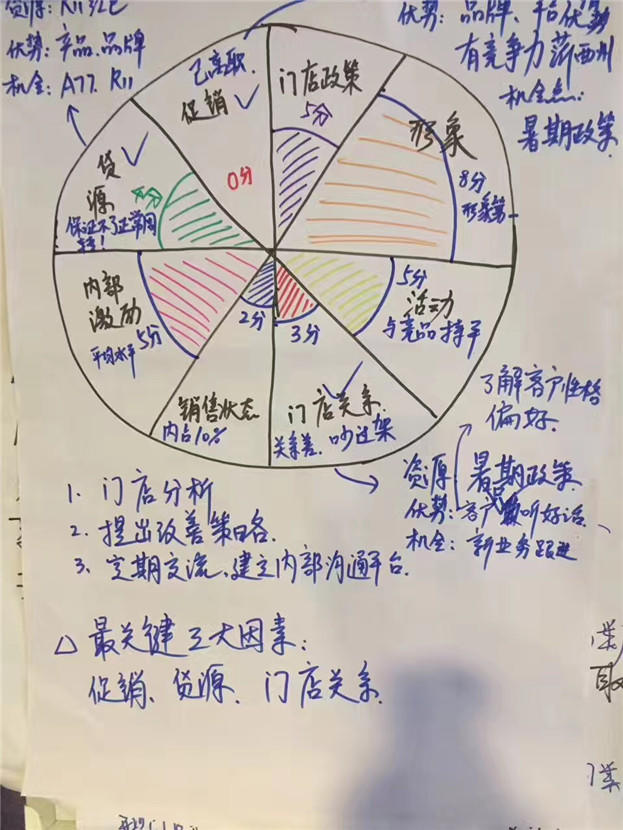 货源: R11红色
优势: 产品.品牌
机会: A77. R11
优势: 品牌、平台优势
有竞争力
机会点:
暑期政策
已离职.
促销
0分
门店政策
5分
形象
8分
形象第一
货源
4分
保证不了正常周转!
内部激励
5分
平均水平
2分
销售状态
内占10%
3分
门店关系
关系差. 吵过架
5分
活动
与竞品持平
了解客户性格
偏好.
资源: 暑期政策
优势: 客户 听好话
机会: 新业务跟进
1. 门店分析
2. 提出改善策略.
3. 定期交流、建立内部沟通平台.
△ 最关键三大因素:
促销、货源、门店关系.